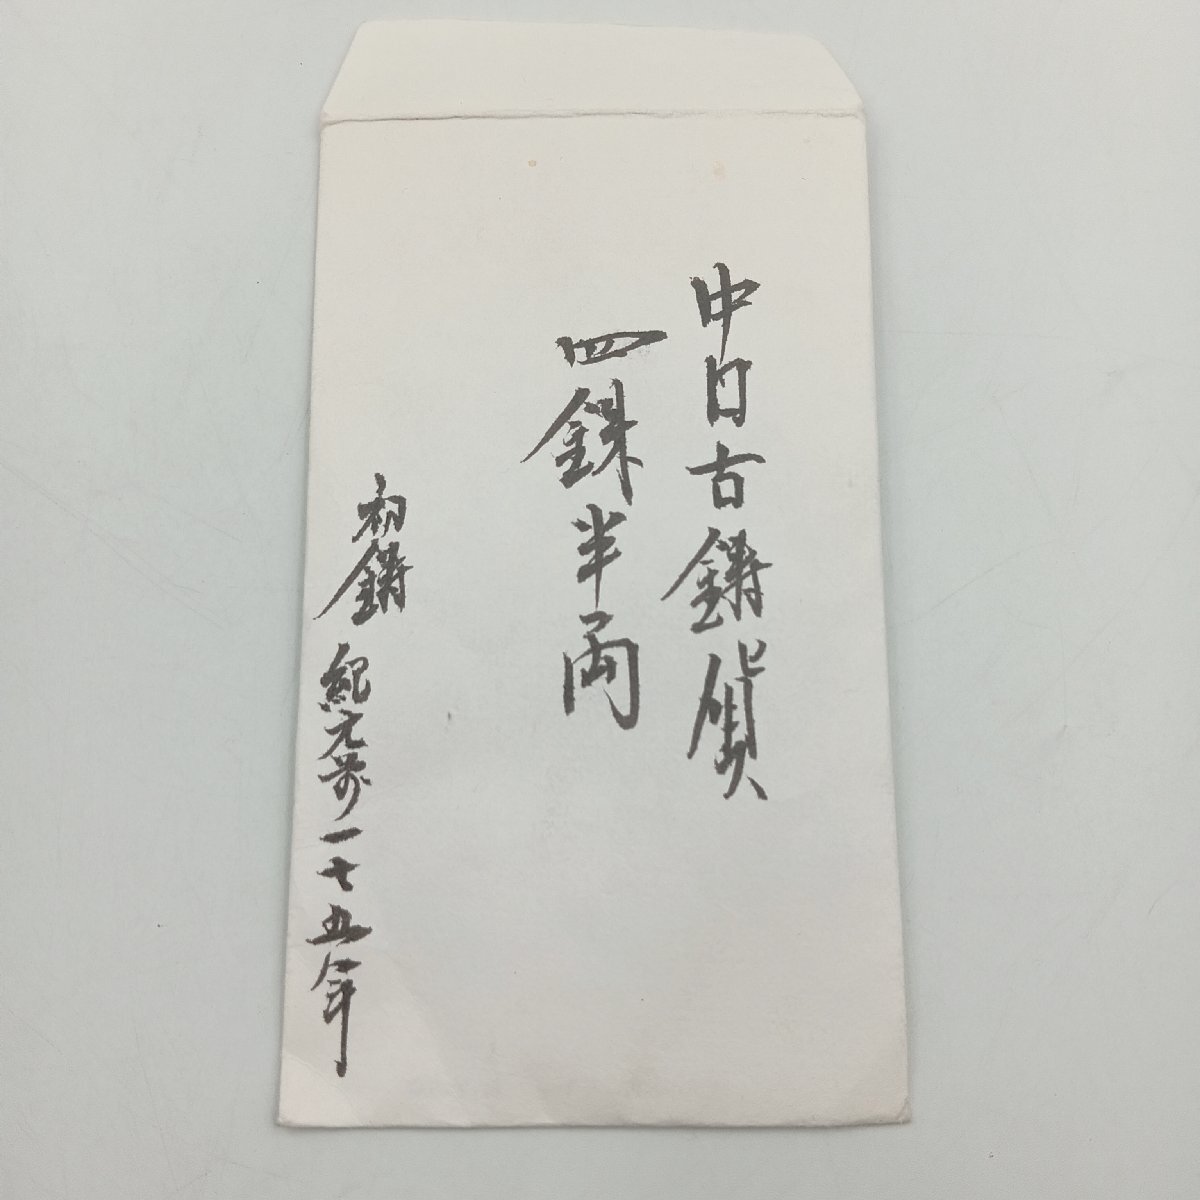 中日古鋳貨
四銖半両
初鋳 紀元前一七五年